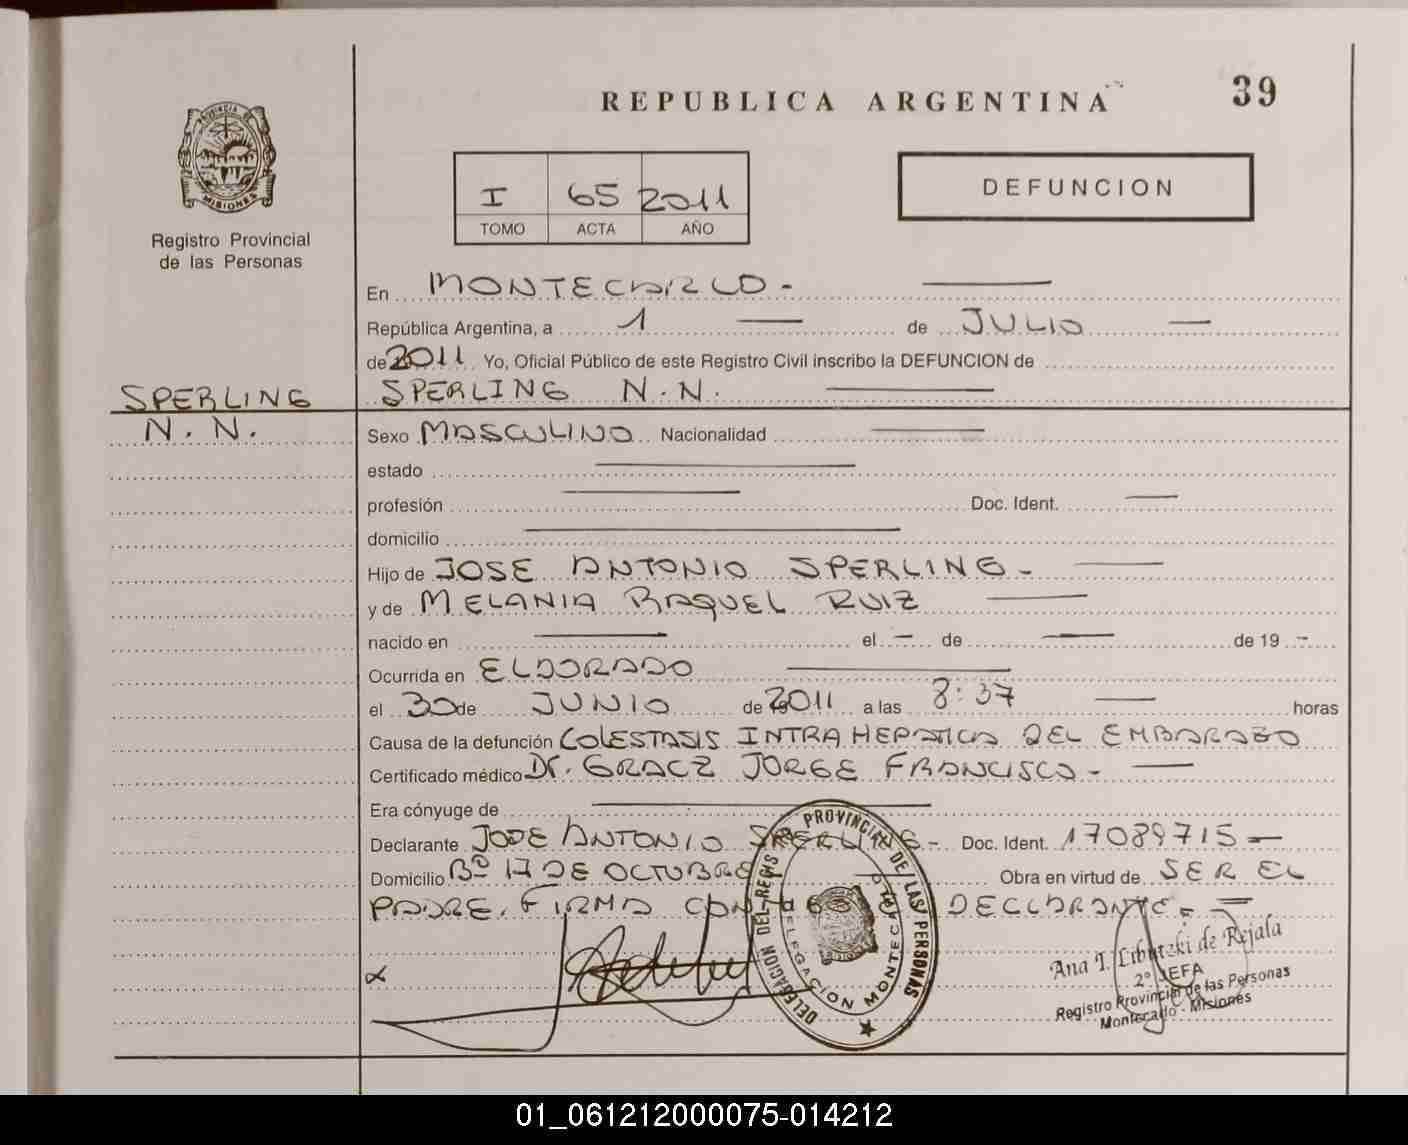 39
REPUBLICA ARGENTINA
PROVINCIA DE
MISIONES
Registro Provincial
de las Personas
I 65 2011
TOMO ACTA AÑO
DEFUNCION
En MONTECARLO.-
República Argentina, a 1 de JULIO
de 2011 Yo, Oficial Público de este Registro Civil inscribo la DEFUNCION de
SPERLING SPERLING N.N.
N.N.
Sexo MASCULINO Nacionalidad
estado
profesión Doc. Ident.
domicilio
Hijo de JOSE ANTONIO SPERLING.-
y de MELANIA RAQUEL RUIZ
nacido en el - de de 19 -
Ocurrida en ELDORADO
el 30 de JUNIO de 2011 a las 8:37 horas
Causa de la defunción COLESTASIS INTRAHEPATICA DEL EMBARAZO
Certificado médico Dr. GRACZ JORGE FRANCISCO.-
Era cónyuge de
Declarante JOSE ANTONIO SPERLING.- Doc. Ident. 17089715 -
Domicilio Bº 17 DE OCTUBRE Obra en virtud de SER EL
PADRE. FIRMA CONMIGO EL DECLARANTE.-
DELEGACION DEL REGIS PROVINCIAL DE LAS PERSONAS
DELEGACION MONTEC
Ana I. Libutzki de Rejala
2° JEFA
Registro Provincial de las Personas
Montecarlo - Misiones
01_061212000075-014212